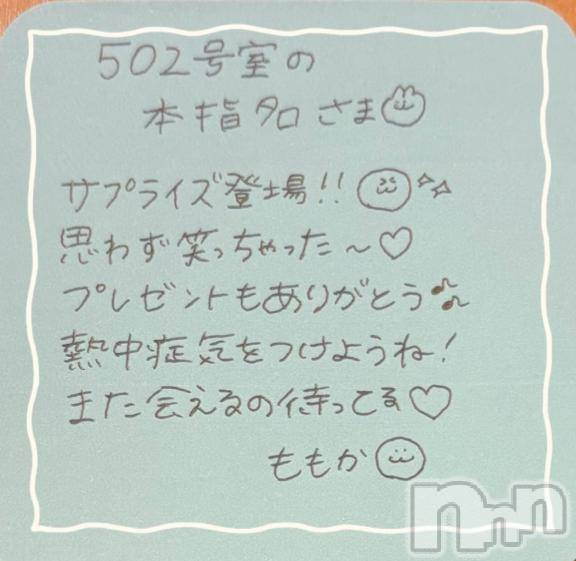 502号室の
本指名さま
サプライズ登場!!
思わず笑っちゃった〜♡
プレゼントもありがとう♫
熱中症気をつけようね!
また会えるの待ってる♡
ももか
nnn